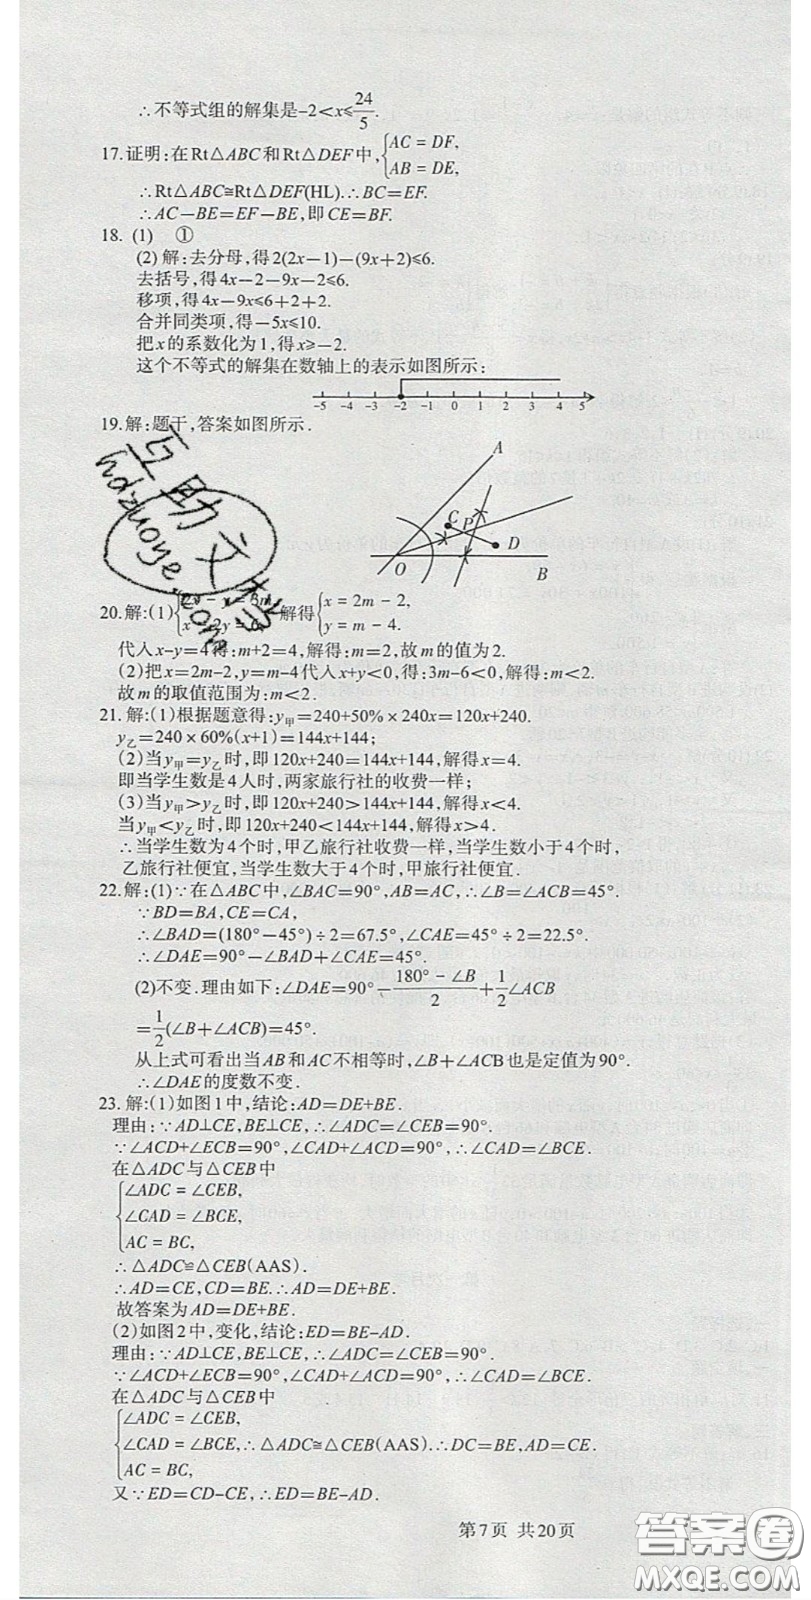 ∴不等式组的解集是-2<x≤24/5.
17.证明:在Rt△ABC和Rt△DEF中,{AC=DF, AB=DE,
∴Rt△ABC≌Rt△DEF(HL).∴BC=EF.
∴AC-BE=EF-BE,即CE=BF.
18. (1) ①
(2)解:去分母,得2(2x-1)-(9x+2)≤6.
去括号,得4x-2-9x-2≤6.
移项,得4x-9x≤6+2+2.
合并同类项,得-5x≤10.
把x的系数化为1,得x≥-2.
这个不等式的解集在数轴上的表示如图所示:
-5 -4 -3 -2 -1 0 1 2 3 4 5
19.解:题干,答案如图所示.
A
C P D
O B
互助文档
hdzuoye.com
20.解:(1) 解得{x=2m-2, y=m-4.
代人x-y=4得:m+2=4,解得:m=2,故m的值为2.
(2)把x=2m-2,y=m-4代人x+y<0,得:3m-6<0,解得:m<2.
故m的取值范围为:m<2.
21.解:(1)根据题意得:y甲=240+50%×240x=120x+240.
y乙=240×60%(x+1)=144x+144;
(2)当y甲=y乙时,即120x+240=144x+144,解得x=4.
即当学生数是4人时,两家旅行社的收费一样;
(3)当y甲>y乙时,即120x+240>144x+144,解得x<4.
当y甲<y乙时,即120x+240<144x+144,解得x>4.
∴当学生数为4个时,甲乙旅行社收费一样,当学生数小于4个时,
乙旅行社便宜,当学生数大于4个时,甲旅行社便宜.
22.解:(1)∵在△ABC中,∠BAC=90°,AB=AC,∴∠B=∠ACB=45°.
∵BD=BA,CE=CA,
∴∠BAD=(180°-45°)÷2=67.5°,∠CAE=45°÷2=22.5°.
∴∠DAE=90°-∠BAD+∠CAE=45°.
(2)不变.理由如下:∠DAE=90°-(180°-∠B)/2+1/2∠ACB
=1/2(∠B+∠ACB)=45°.
从上式可看出当AB和AC不相等时,∠B+∠ACB也是定值为90°.
∴∠DAE的度数不变.
23.解:(1)如图1中,结论:AD=DE+BE.
理由:∵AD⊥CE,BE⊥CE,∴∠ADC=∠CEB=90°.
∵∠ACD+∠ECB=90°,∠CAD+∠ACD=90°,∴∠CAD=∠BCE.
在△ADC与△CEB中
{∠ADC=∠CEB,
∠CAD=∠BCE,
AC=BC,
∴△ADC≌△CEB(AAS).
∴AD=CE,CD=BE.∴AD=DE+BE.
故答案为AD=DE+BE.
(2)如图2中,变化,结论:ED=BE-AD.
理由:∵AD⊥CE,BE⊥CE,∴∠ADC=∠CEB=90°.
∵∠ACD+∠ECB=90°,∠CAD+∠ACD=90°,∴∠CAD=∠BCE.
在△ADC与△CEB中
{∠ADC=∠CEB,
∠CAD=∠BCE,∴△ADC≌△CEB(AAS).∴DC=BE,AD=CE.
AC=BC,
又∵ED=CD-CE,∴ED=BE-AD.
第7页 共20页
答案圈
MXQE.COM